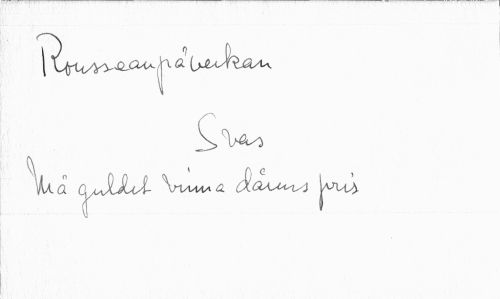 Rousseaupåverkan
Svas
Må guldet vinna dårens pris